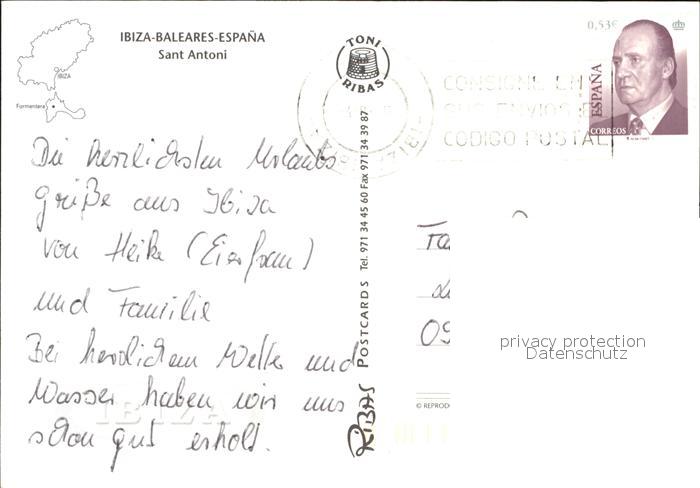 IBIZA-BALEARES-ESPAÑA
Sant Antoni
IBIZA
Formentera
TONI
RIBAS
0,53€
ESPAÑA
CORREOS
CONSIGNE EN
SUS ENVIOS EL
CODIGO POSTAL
Die herzlichsten Urlaubs
grüße aus Ibiza
von Heike (Eierfrau)
und Familie
Bei herrlichem Wetter und
Wasser haben wir uns
schon gut erholt.
IBIZA
RIBAS POSTCARDS Tel. 971 34 45 60 Fax 971 34 39 87
Fa
09
privacy protection
Datenschutz
© REPROD